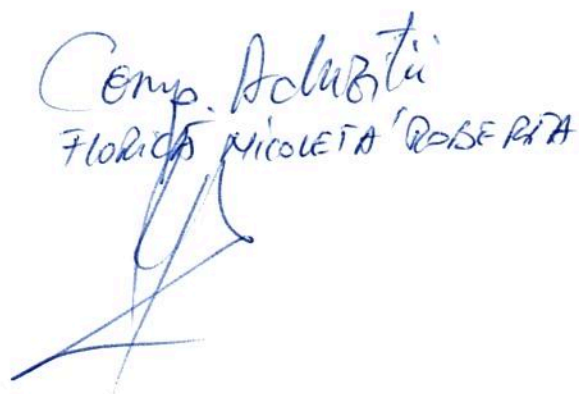 Comp. Achiziții
FLORICĂ NICOLETA ROBERTA